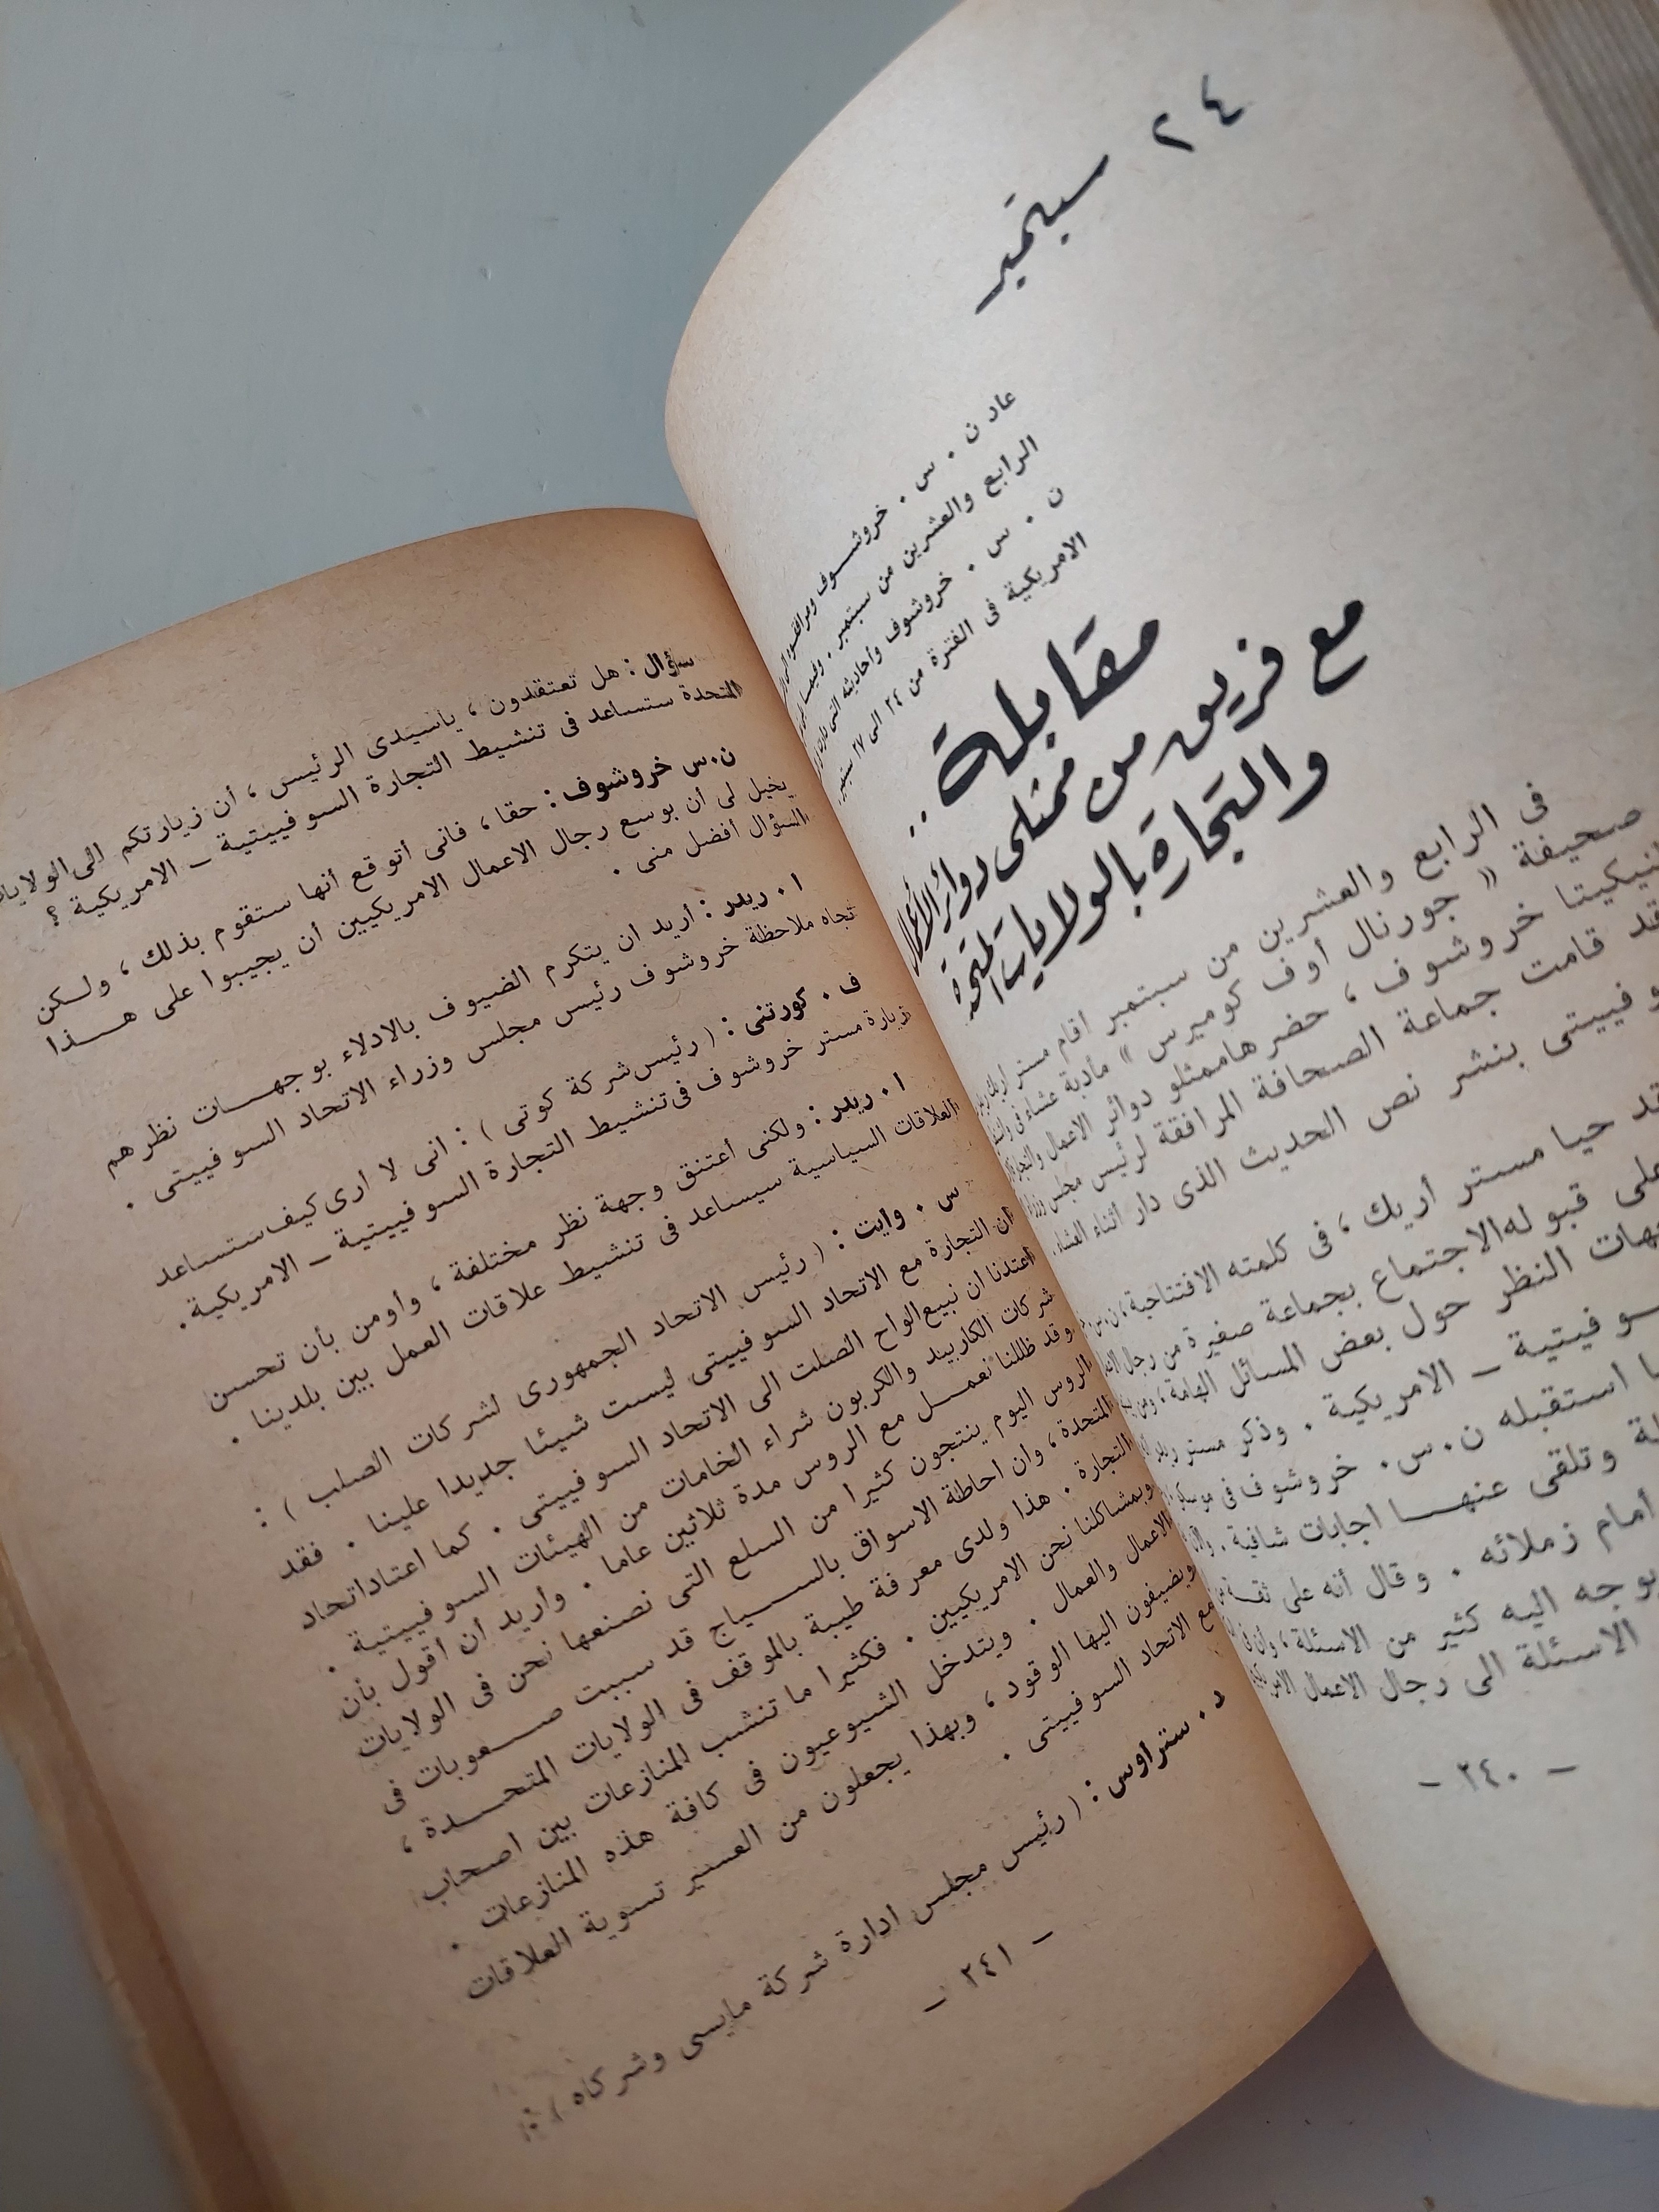 ٢٤ سبتمبر
عاد ن ٠ س ٠ خروشوف ومرافقوه الى
الرابع والعشرين من سبتمبر ٠ وفيما
ن ٠ س ٠ خروشوف وأحاديثه التى
الامريكية فى الفترة من ٢٤ الى ٢٧ سبتمبر
مقابلة ..
مع فريق من ممثلى دوائر الأعمال
والتجارة بالولايات المتحدة
فى الرابع والعشرين من سبتمبر اقام مستر اريك
صحيفة « جورنال أوف كوميرس » مأدبة عشاء فى
لنيكيتا خروشوف ، حضرها ممثلو دوائر الاعمال والتجارة
قد قامت جماعة الصحافة المرافقة لرئيس مجلس وزراء
بنشر نص الحديث الذى دار اثناء العشاء
حيا مستر أريك ، فى كلمته الافتتاحية ، ن٠س
على قبوله الاجتماع بجماعة صغيرة من رجال
النظر حول بعض المسائل الهامة ،
الامريكية ٠ وذكر مستر ريدر
استقبله ن٠س٠ خروشوف فى موسكو
وتلقى عنهـــا اجابات شافية ٠
أمام زملائه ٠ وقال أنه على ثقـــة
يوجه اليه كثير من الاسئلة ، وأن فى
الاسئلة الى رجال الاعمال
– ٢٤٠ –
سؤال : هل تعتقدون ، ياسيدى الرئيس ، أن زيارتكم الى الولايات
المتحدة ستساعد فى تنشيط التجارة السوفييتية – الامريكية ؟
ن٠س خروشوف : حقا ، فانى أتوقع أنها ستقوم بذلك ، ولـكن
يخيل لى أن بوسع رجال الاعمال الامريكيين أن يجيبوا على هـــذا
السؤال أفضل منى ٠
ا ٠ ريدر : أريد ان يتكرم الضيوف بالادلاء بوجهـــات نظرهم
تجاه ملاحظة خروشوف رئيس مجلس وزراء الاتحاد السوفييتى ٠
ف ٠ كورتنى : ( رئيس شركة كوتى ) : انى لا ارى كيف ستساعد
زيارة مستر خروشوف فى تنشيط التجارة السوفييتية – الامريكية٠
ا ٠ ريدر : ولكنى أعتنق وجهة نظر مختلفة ، وأومن بأن تحسن
العلاقات السياسية سيساعد فى تنشيط علاقات العمل بين بلدينا ٠
س ٠ وايت : ( رئيس الاتحاد الجمهورى لشركات الصلب ) :
ان التجارة مع الاتحاد السوفييتى ليست شيئا جديدا علينا ٠ فقد
اعتدنا ان نبيع الواح الصلت الى الاتحاد السوفييتى ٠ كما اعتاد اتحاد
شركات الكاربيد والكربون شراء الخامات من الهيئات السوفييتية ٠
وقد ظللنا نعمـــل مع الروس مدة ثلاثين عاما ٠ واريد ان اقول بأن
الروس اليوم ينتجون كثيرا من السلع التى نصنعها نحن فى الولايات
المتحدة ، وان احاطة الاسواق بالســـياج قد سببت صـــعوبات فى
التجارة ٠ هذا ولدى معرفة طيبة بالموقف فى الولايات المتحـــدة ،
وبمشاكلنا نحن الامريكيين ٠ فكثيرا ما تنشب المنازعات بين اصحاب
الاعمال والعمال ٠ ويتدخل الشيوعيون فى كافة هذه المنازعات ٠
ويضيفون اليها الوقود ، وبهذا يجعلون من العسير تسوية العلاقات
مع الاتحاد السوفييتى ٠
د ٠ ستراوس : ( رئيس مجلس ادارة شركة مايسى وشركاه ) :
– ٢٤١ –